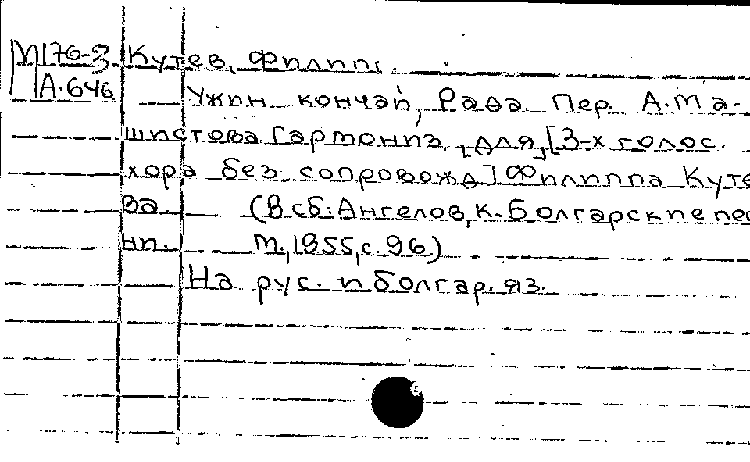 М176-3 Кутев, Филипп.
А.646 Ужин кончай, Рада Пер. А.Ма-
шистова Гармониз. для [3-х голос.
хора без сопровожд] Филиппа Куте
ва (В сб: Ангелов, к. Болгарские пес
ни. М., 1955, с. 96)
На рус. и болгар. яз.